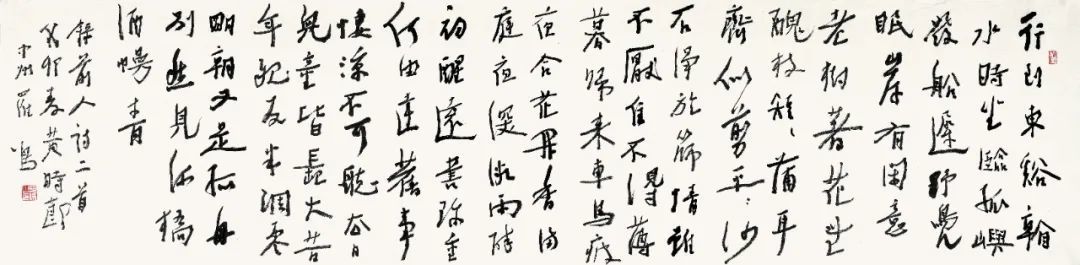 行到東谿看
水時坐臨孤嶼
發船遲野鳧
眠岸有閑意
老樹著花無
醜枝短々蒲耳
齊似剪平々沙
石淨於篩情雖
不厭住不得薄
暮歸來車馬疲
夜合花開香滿
庭夜深微雨醉
初醒遠書珍重
何由達舊事
悽涼不可聽去日
兒童皆長大昔
年親友半凋零
明朝又是孤舟
別愁見河橋
酒幔青
錄前人詩二首
癸卯春黃時
羅鳴